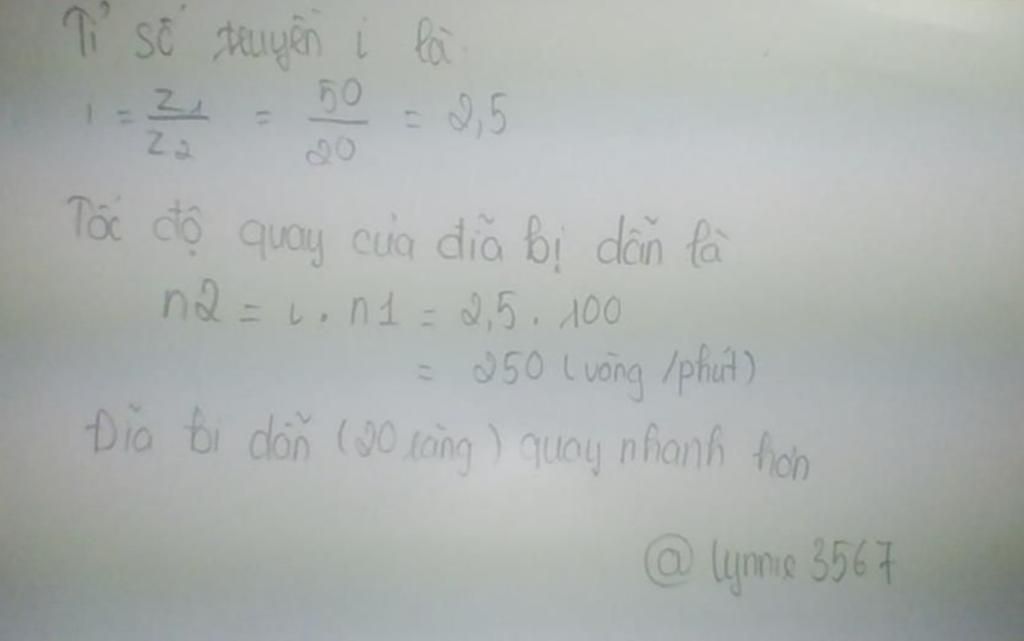 Tỉ số truyền i là
i = Z1/Z2 = 50/20 = 2,5
Tốc độ quay của đĩa bị dẫn là
n2 = i . n1 = 2,5 . 100
= 250 (vòng /phút)
Đĩa bi dẫn (20 răng) quay nhanh hơn
@ lynnie 3567